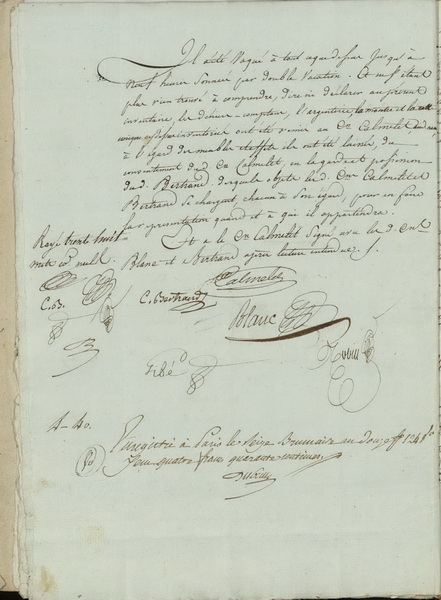 Il a été vaqué à tout ce que dessus jusqu'à
neuf heures sonnées par double vacation. Et ne s'étant
plus rien trouvé à comprendre, dire ni déclarer au présent
inventaire, les deniers comptans, l'argenterie, la montre et
inventorié ont été remis au Cen Calmelet
à l'égard des meubles et effets ils ont été laissés, du
consentement dud. Cen Calmelet, en la garde et possession
dud. Bertrand, desquels objets led. Cen Calmelet et
Bertrand se chargent, chacun à son égard, pour en faire
la représentation quand et à qui il appartiendra.
Et a le Cen Calmelet signé avec led. Cen
Blanc et Bertrand après lecture entendue /.
Rayé trente huit
mots comme nuls.
C. B.
C. Bertrand
Calmelet
Blanc
4-40.
Enregistré à Paris le seize Brumaire an douze
Reçu quatre francs quarante centimes